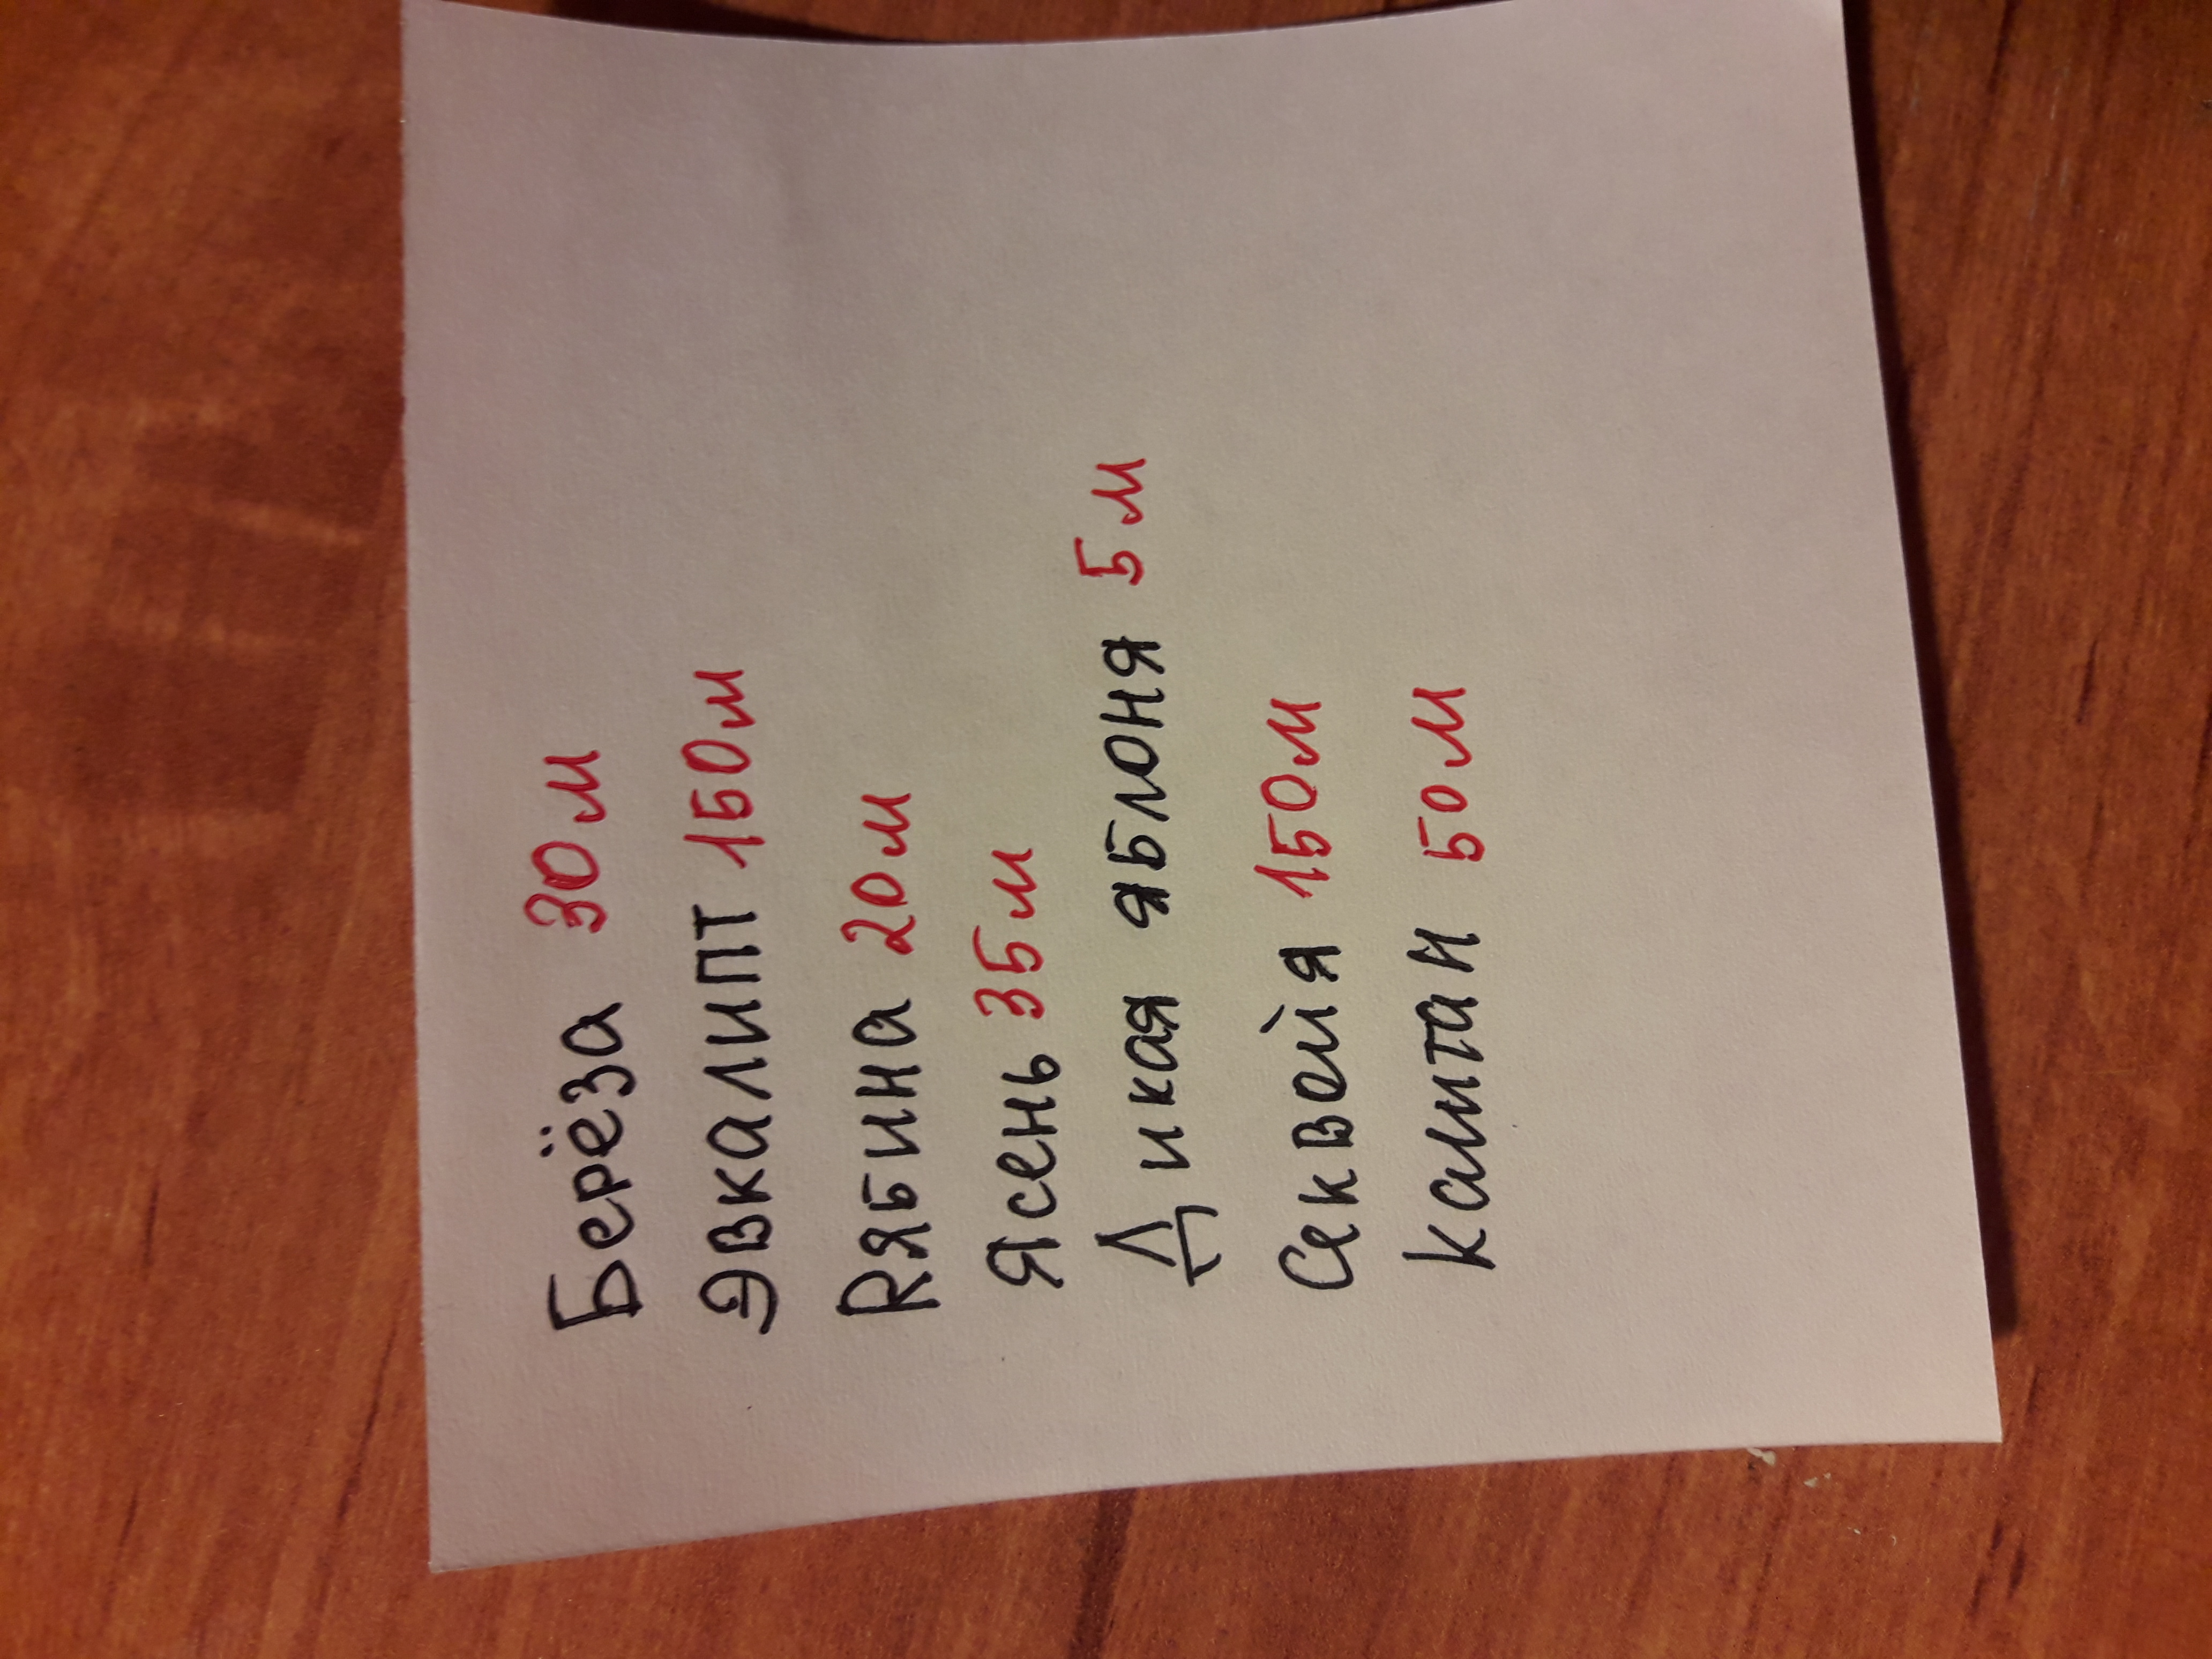 Берёза 30м
Эвкалипт 150м
Rябина 20м
Ясень 35м
Дикая яблоня 5м
Секвейя 150м
Каштан 50м